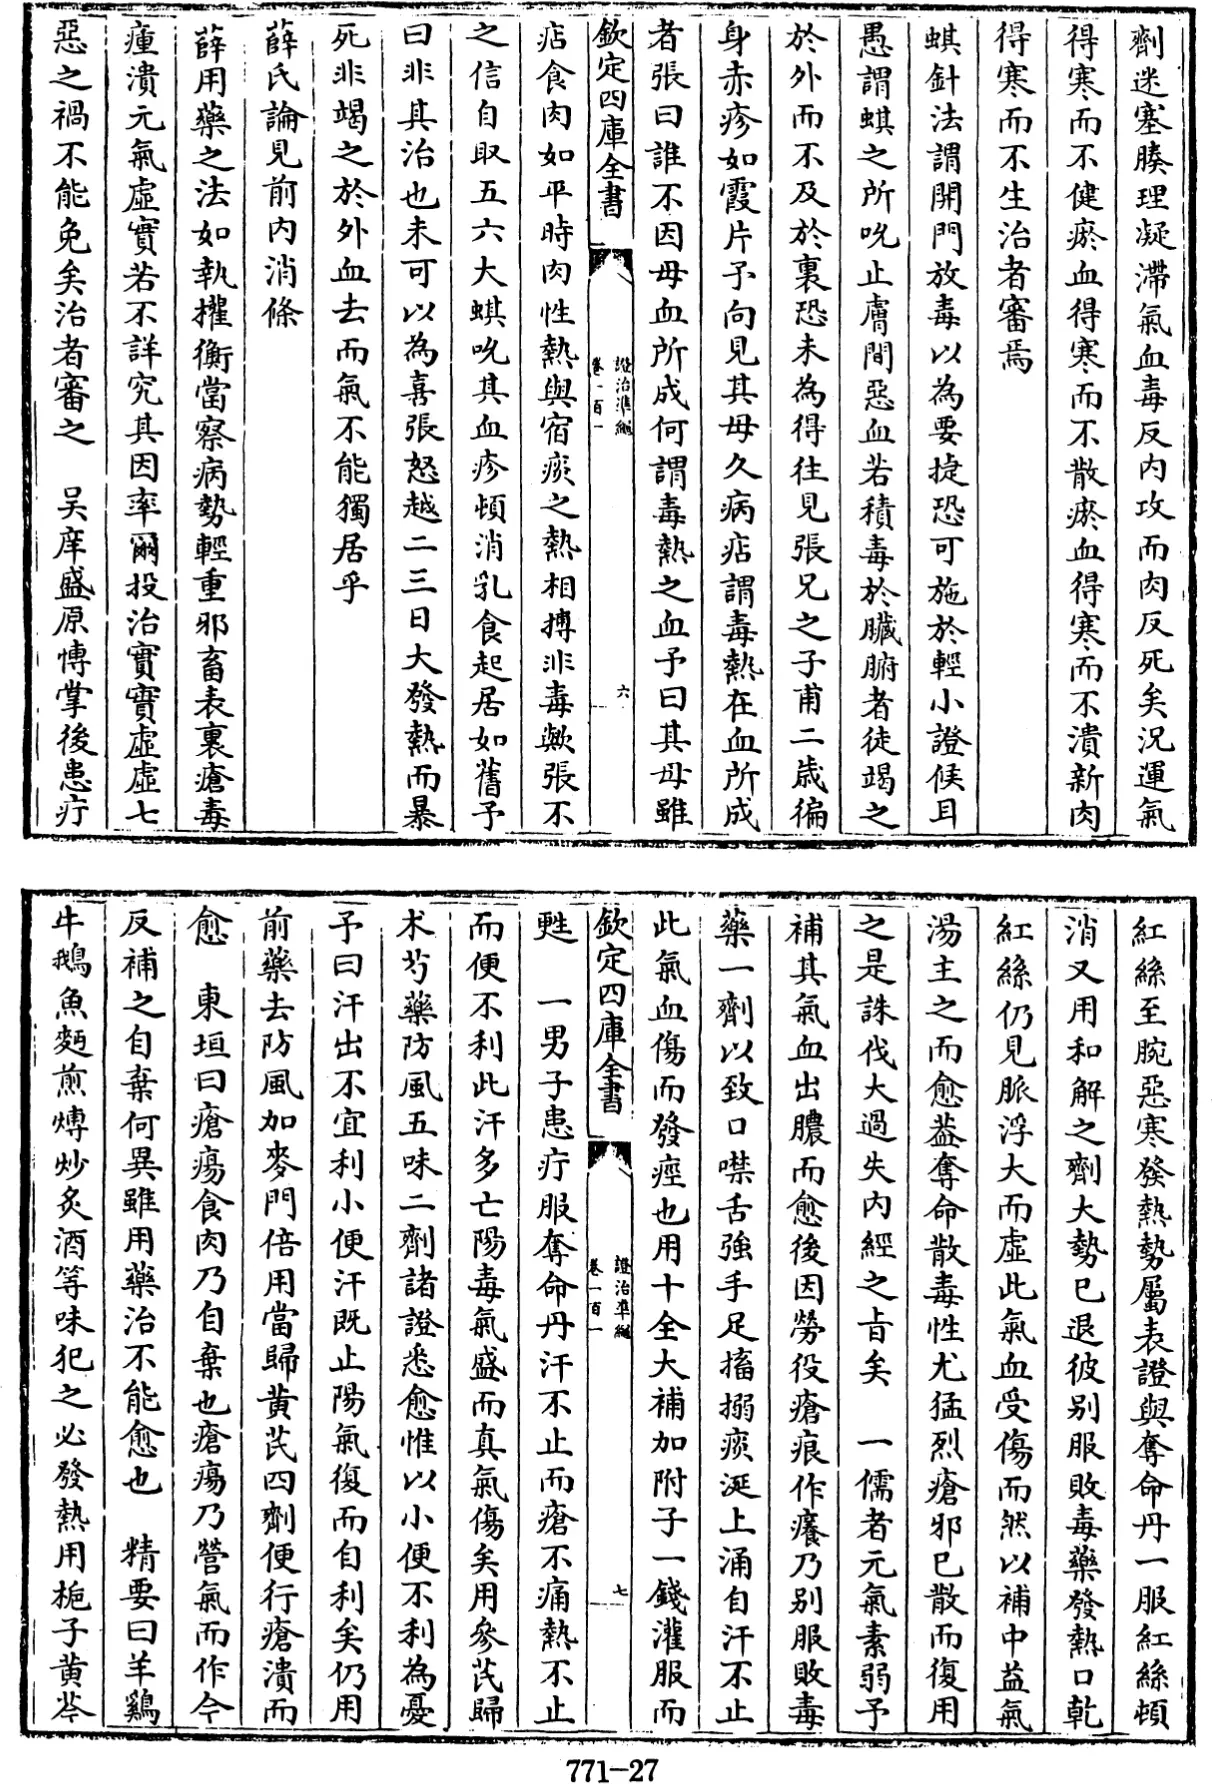 劑迷塞腠理凝滯氣血毒反内攻而肉反死矣況運氣
得寒而不健瘀血得寒而不散瘀血得寒而不潰新肉
得寒而不生治者審焉
蜞針法謂開門放毒以為要捷恐可施於輕小證候耳
愚謂蜞之所吮止膚間惡血若積毒於臟腑者徒竭之
於外而不及於裏恐未為得往見張兄之子甫二歲徧
身赤疹如霞片予向見其母久病痁謂毒熱在血所成
者張曰誰不因母血所成何謂毒熱之血予曰其母雖
欽定四庫全書
證治準繩
卷一百一
六
痁食肉如平時肉性熱與宿痰之熱相搏非毒歟張不
之信自取五六大蜞吮其血疹頓消乳食起居如舊予
曰非其治也未可以為喜張怒越二三日大發熱而暴
死非竭之於外血去而氣不能獨居乎
薛氏論見前内消條
薛用藥之法如執權衡當察病勢輕重邪畜表裏瘡毒
瘇潰元氣虛實若不詳究其因率爾投治實實虛虛七
惡之禍不能免矣治者審之　吴庠盛原博掌後患疔
紅絲至腕惡寒發熱勢屬表證與奪命丹一服紅絲頓
消又用和解之劑大勢已退彼别服敗毒藥發熱口乾
紅絲仍見脈浮大而虛此氣血受傷而然以補中益氣
湯主之而愈葢奪命散毒性尤猛烈瘡邪已散而復用
之是誅伐大過失内經之旨矣　一儒者元氣素弱予
補其氣血出膿而愈後因勞役瘡痕作癢乃别服敗毒
藥一劑以致口噤舌強手足搐搦痰涎上涌自汗不止
此氣血傷而發痙也用十全大補加附子一錢灌服而
欽定四庫全書
證治準繩
卷一百一
七
甦　一男子患疔服奪命丹汗不止而瘡不痛熱不止
而便不利此汗多亡陽毒氣盛而真氣傷矣用參茋歸
术芍藥防風五味二劑諸證悉愈惟以小便不利為憂
予曰汗出不宜利小便汗既止陽氣復而自利矣仍用
前藥去防風加麥門倍用當歸黄茋四劑便行瘡潰而
愈　東垣曰瘡瘍食肉乃自棄也瘡瘍乃營氣而作今
反補之自棄何異雖用藥治不能愈也　精要曰羊鷄
牛鵝魚麪煎煿炒炙酒等味犯之必發熱用梔子黄芩
771-27